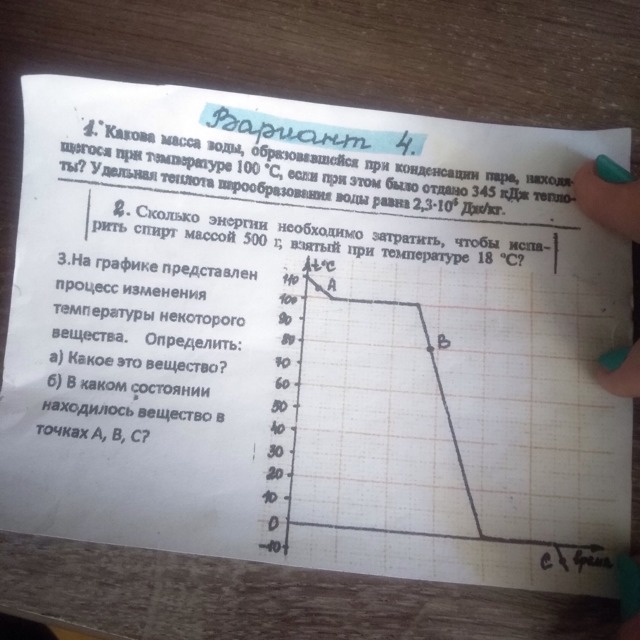 Вариант 4.
1. Какова масса воды, образовавшейся при конденсации пара, находя-
щегося при температуре 100 °С, если при этом было отдано 345 кДж тепло-
ты? Удельная теплота парообразования воды равна 2,3·10⁶ Дж/кг.
2. Сколько энергии необходимо затратить, чтобы испа-
рить спирт массой 500 г, взятый при температуре 18 °С?
3.На графике представлен
процесс изменения
температуры некоторого
вещества. Определить:
а) Какое это вещество?
б) В каком состоянии
находилось вещество в
точках А, В, С?
t°C
110
A
100
90
80
B
70
60
50
40
30
20
10
0
-10
C